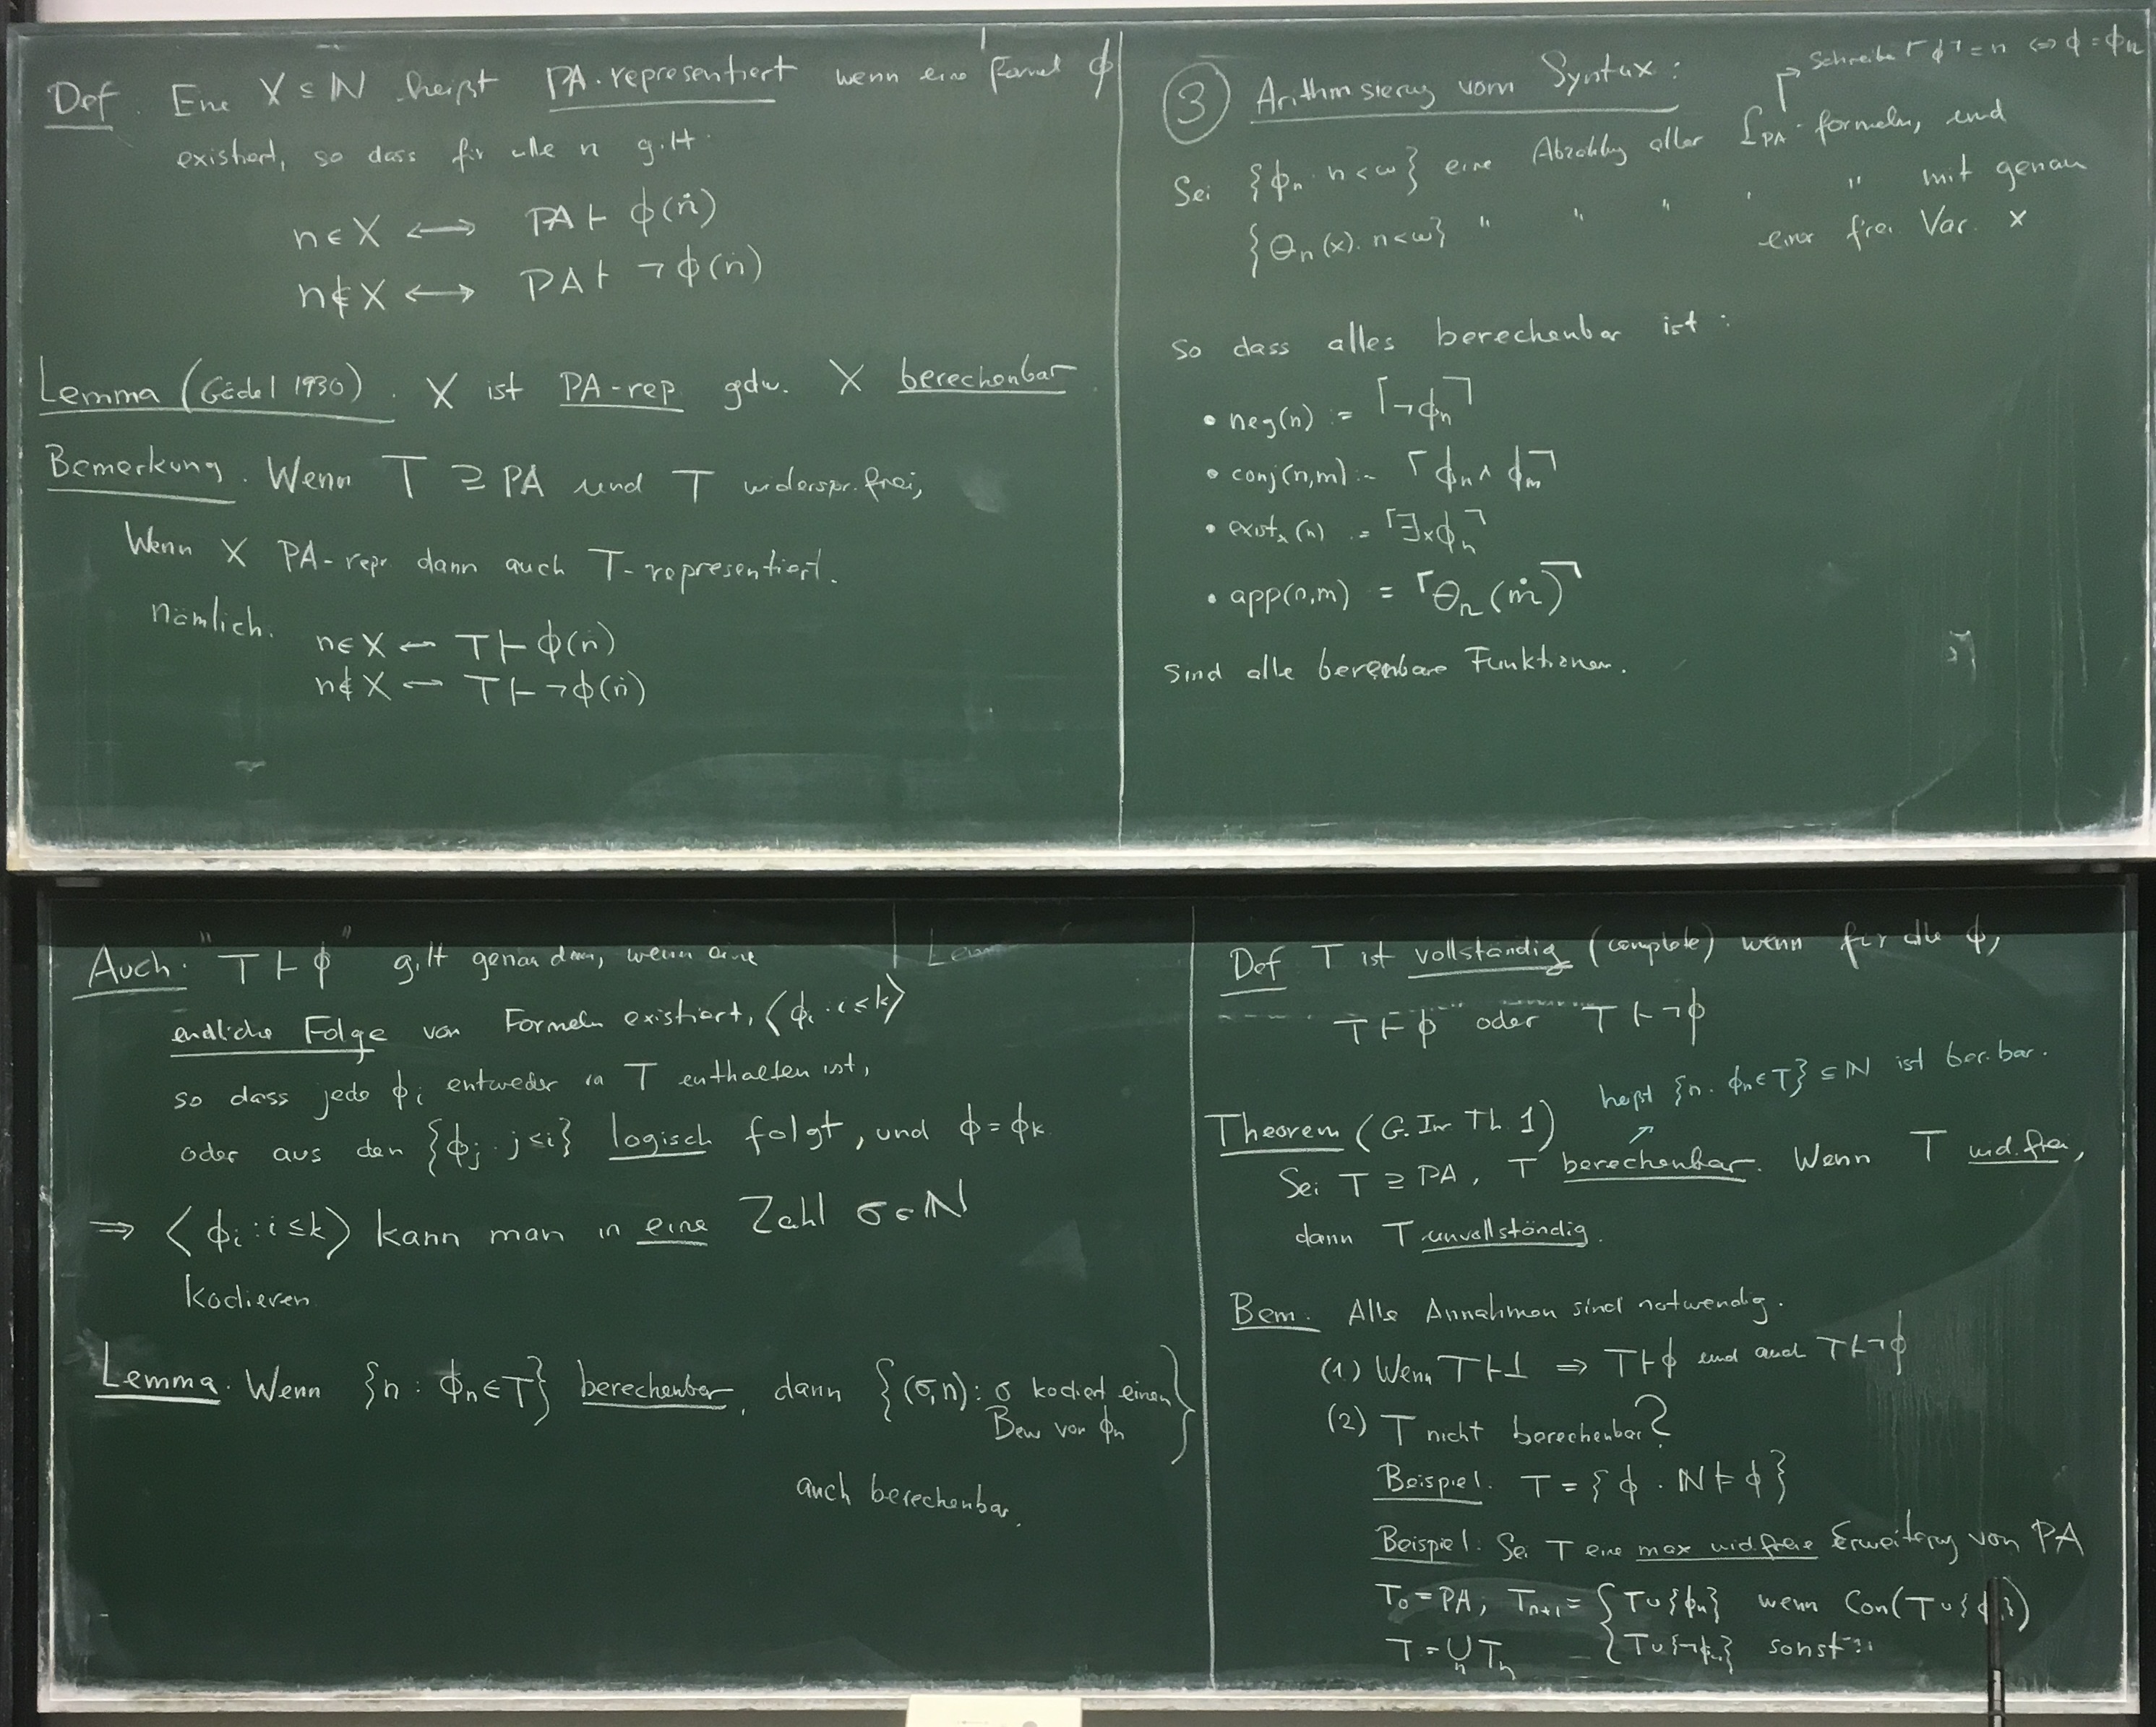 Def. Eine X ⊆ ℕ heißt PA-representiert wenn eine Formel ϕ
existiert, so dass für alle n gilt:
n ∈ X ⟷ PA ⊢ ϕ(ṅ)
n ∉ X ⟷ PA ⊢ ¬ϕ(ṅ)
Lemma (Gödel 1930). X ist PA-rep gdw. X berechenbar.
Bemerkung. Wenn T ⊇ PA und T widerspr.frei,
Wenn X PA-repr dann auch T-representiert.
nämlich.
n ∈ X ⟷ T ⊢ ϕ(ṅ)
n ∉ X ⟷ T ⊢ ¬ϕ(ṅ)
Schreibe ⌜ϕ⌝ = n ⟺ ϕ = ϕn
③ Arithmisierug vom Syntax:
Sei {ϕn : n < ω} eine Abzählug aller 𝓛PA-formeln, und
{Θn(x) : n < ω} " " " " mit genau
einer frei Var. x
So dass alles berechenbar ist:
• neg(n) := ⌜¬ϕn⌝
• conj(n,m) := ⌜ϕn ∧ ϕm⌝
• existx(n) := ⌜∃xϕn⌝
• app(n,m) = ⌜Θn(ṁ)⌝
sind alle berenbare Funktionen.
Auch: "T ⊢ ϕ" gilt genau dann, wenn eine
endliche Folge von Formeln existiert, ⟨ϕi : i ≤ k⟩
so dass jede ϕi entweder in T enthalten ist,
oder aus den {ϕj : j < i} logisch folgt, und ϕ = ϕk
⇒ ⟨ϕi : i ≤ k⟩ kann man in eine Zahl σ ∈ ℕ
kodieren
Lemma. Wenn {n : ϕn ∈ T} berechenbar, dann {(σ,n) : σ kodiert einen
Bew von ϕn}
auch berechenbar.
Def T ist vollständig (complete) wenn für alle ϕ,
T ⊢ ϕ oder T ⊢ ¬ϕ
heißt {n : ϕn ∈ T} ⊆ ℕ ist ber.bar.
Theorem (G. In Th. 1)
Sei T ⊇ PA, T berechenbar. Wenn T wid.frei,
dann T unvollständig.
Bem. Alle Annahmen sind notwendig.
(1) Wenn T ⊢ ⊥ ⇒ T ⊢ ϕ und auch T ⊢ ¬ϕ
(2) T nicht berechenbar?
Beispiel: T = {ϕ : ℕ ⊨ ϕ}
Beispiel: Sei T eine max wid.freie Erweiterug von PA
T0 = PA, Tn+1 = { T ∪ {ϕn} wenn Con(T ∪ {ϕn})
T = ⋃n Tn { T ∪ {¬ϕn} sonst